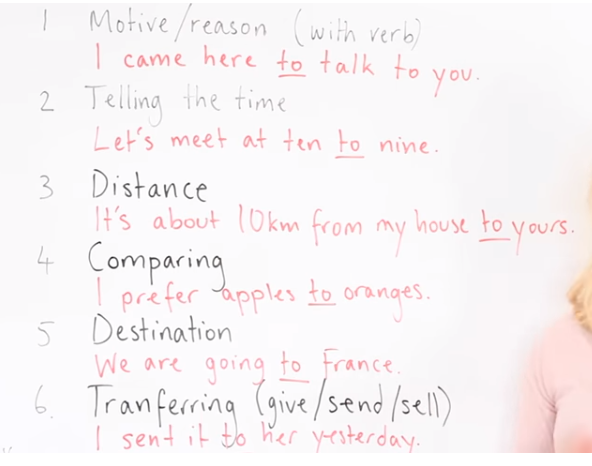 1 Motive/reason (with verb)
I came here to talk to you.
2 Telling the time
Let's meet at ten to nine.
3 Distance
It's about 10km from my house to yours.
4 Comparing
I prefer apples to oranges.
5 Destination
We are going to France.
6. Tranferring (give/send/sell)
I sent it to her yesterday.